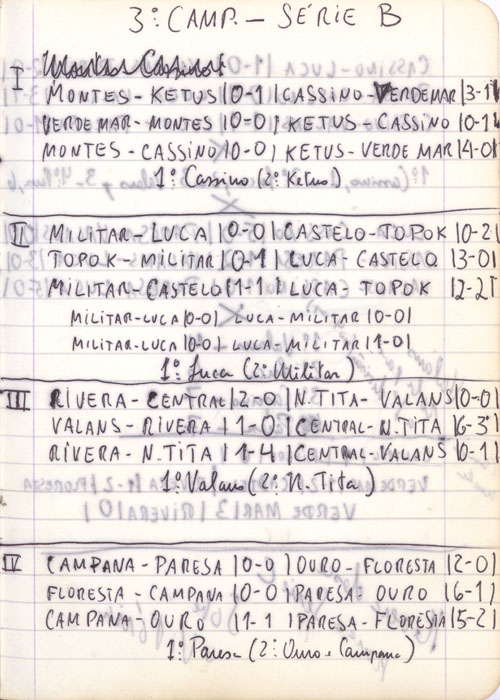 3º CAMP. - SÉRIE B
I
MONTES - KETUS |0-1| CASSINO - VERDEMAR |3-1|
VERDE MAR - MONTES |0-0| KETUS - CASSINO |0-1|
MONTES - CASSINO |0-0| KETUS - VERDE MAR |4-0|
1º Cassino (2º Ketus)
II MILITAR - LUCA |0-0| CASTELO - TOPOK |0-2|
TOPOK - MILITAR |0-1| LUCA - CASTELO |3-0|
MILITAR - CASTELO |1-1| LUCA - TOPOK |2-2|
MILITAR - LUCA |0-0| LUCA - MILITAR |0-0|
MILITAR - LUCA |0-0| LUCA - MILITAR |1-0|
1º Luca (2º Militar)
III RIVERA - CENTRAL |2-0| N. TITA - VALANS |0-0|
VALANS - RIVERA |1-0| CENTRAL - N. TITA |6-3|
RIVERA - N. TITA |1-4| CENTRAL - VALANS |0-1|
1º Valans (2º N. Tita)
IV CAMPANA - PARESA |0-0| OURO - FLORESTA |2-0|
FLORESTA - CAMPANA |0-0| PARESA - OURO |6-1|
CAMPANA - OURO |1-1| PARESA - FLORESTA |5-2|
1º Paresa (2º Ouro e Campana)